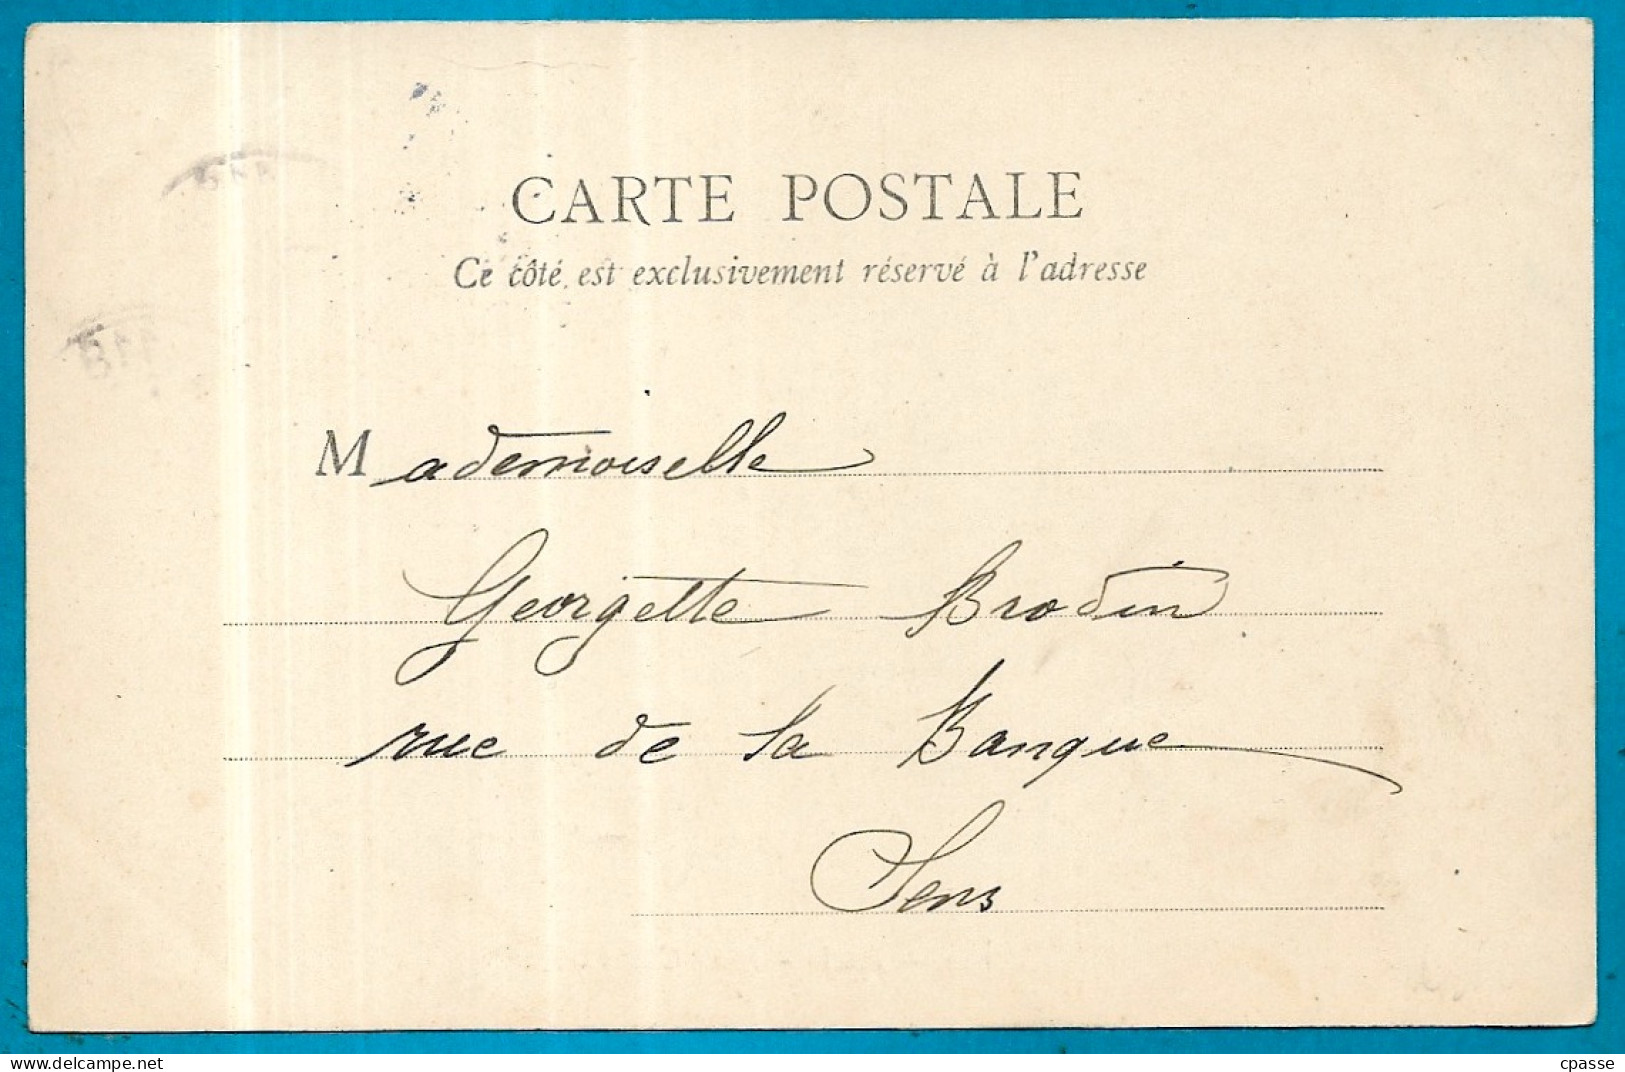 CARTE POSTALE
Ce côté est exclusivement réservé à l'adresse
Mademoiselle
Georgette Brodin
rue de la Banque
Sens
www.delcampe.net
cpasse